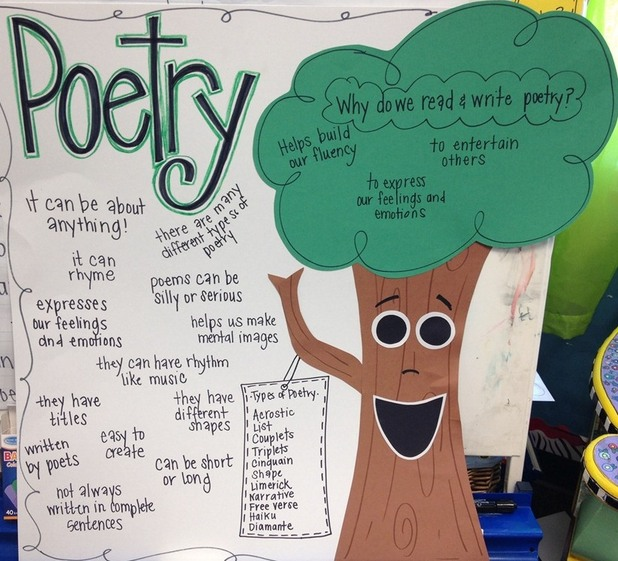 Poetry
it can be about
anything!
there are many
different types of
poetry
it can
rhyme
poems can be
silly or serious
expresses
our feelings
and emotions
helps us make
mental images
they can have rhythm
like music
they have
titles
they have
different
shapes
written
by poets
easy to
create
can be short
or long
not always
written in complete
sentences
Why do we read & write poetry?
Helps build
our fluency
to entertain
others
to express
our feelings and
emotions
Types of Poetry
Acrostic
List
Couplets
Triplets
Cinquain
Shape
Limerick
Narrative
Free Verse
Haiku
Diamante